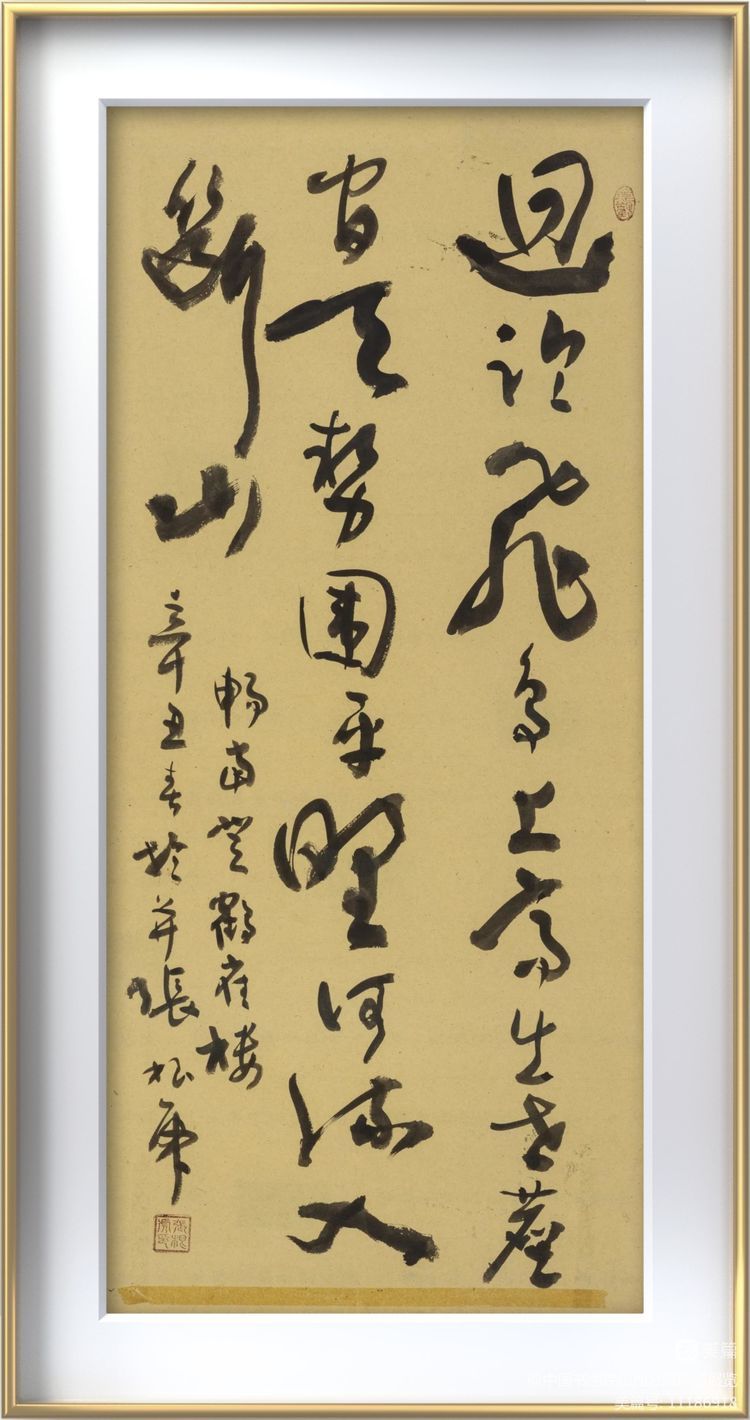 迥臨飛鳥上高出世塵
間天勢圍平野河流入
斷山
暢當登鸛雀樓
辛丑春於并張
美篇